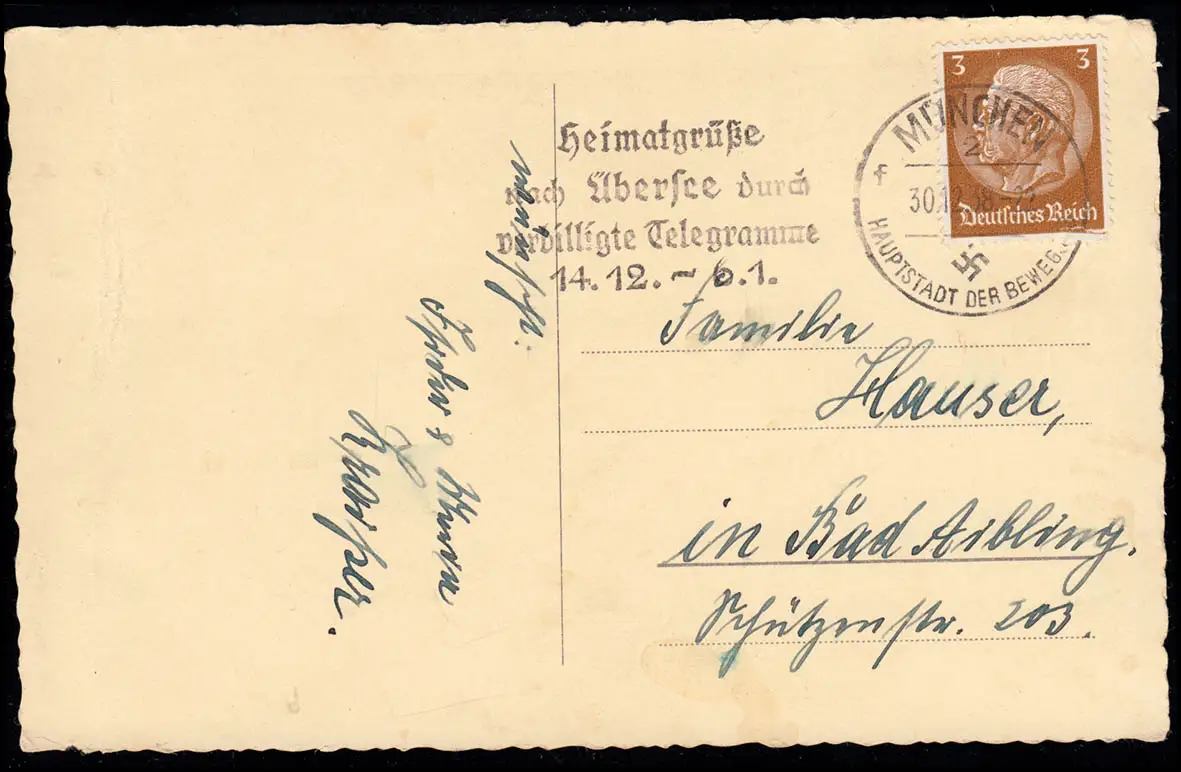 3 3
Deutsches Reich
MÜNCHEN
2
f
30.12.38
HAUPTSTADT DER BEWEG
Heimatgrüße
nach Übersee durch
verbilligte Telegramme
14.12. - 6.1.
wünscht:
Familie
Hauser,
in Bad Aibling.
Schützenstr. 203.